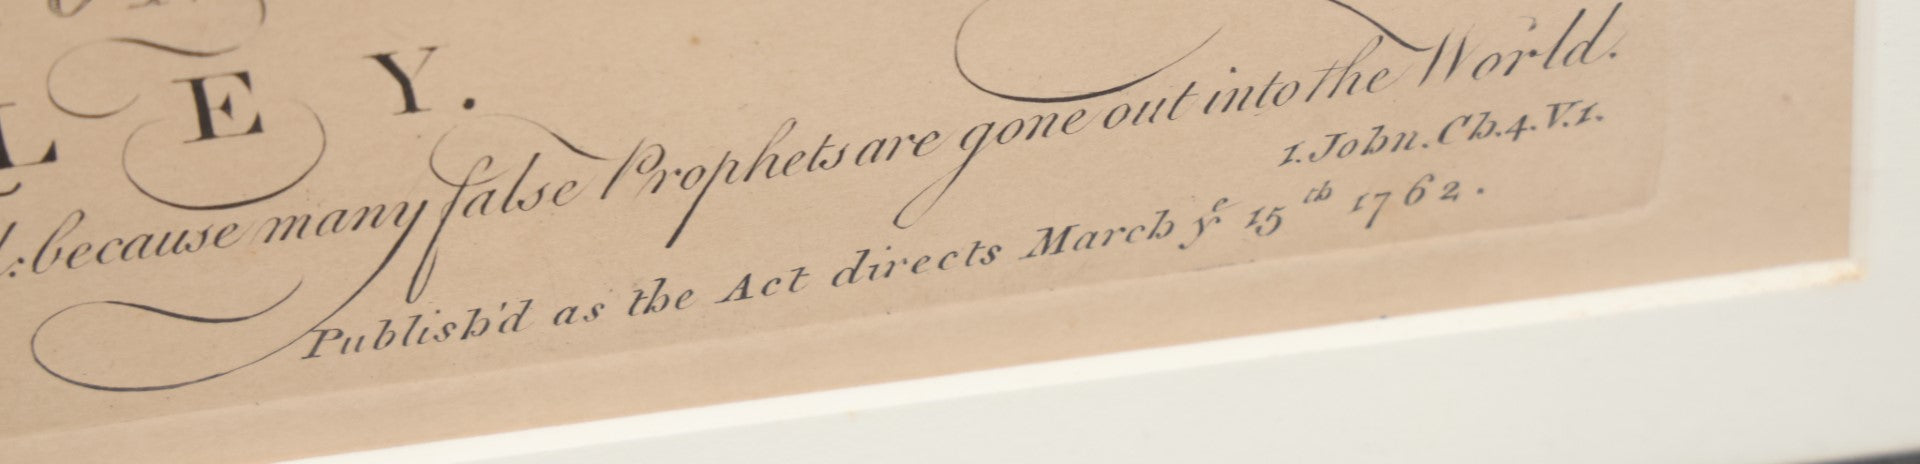 L E Y.
:because many false Prophets are gone out into the World.
1. John. Ch. 4. V. 1.
Publish'd as the Act directs March yᵉ 15ᵗʰ 1762.